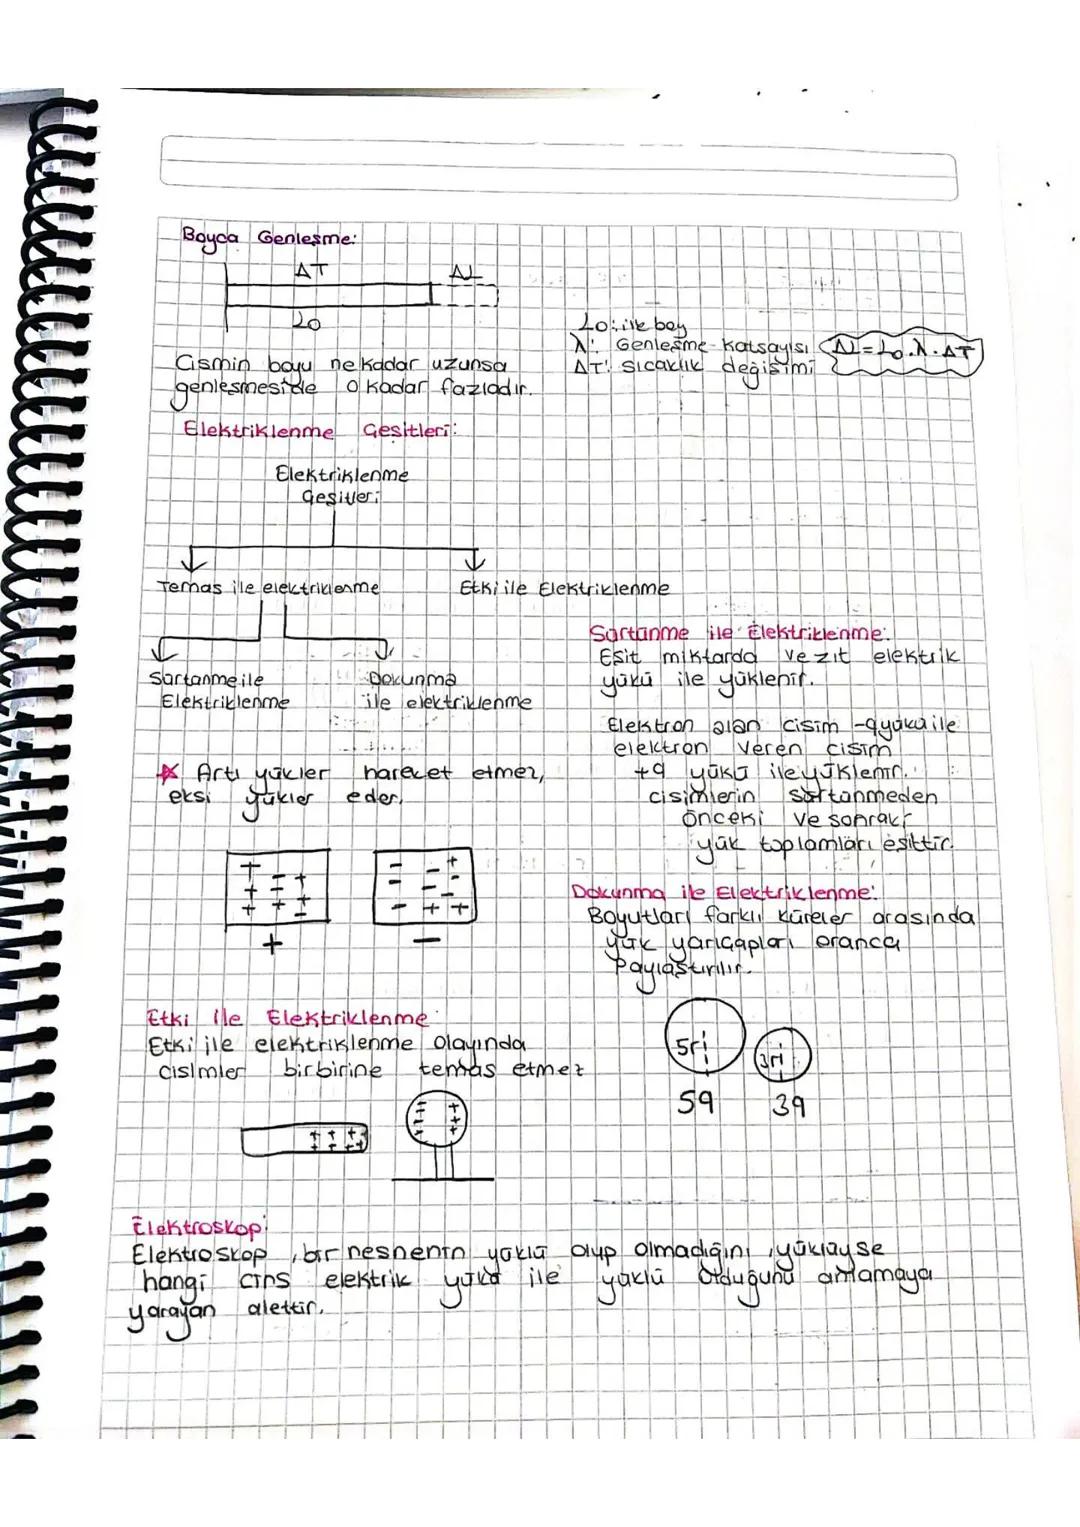 Boyca Genleşme:
ΔT ΔL
Lo
Lo: ilk boy
λ: Genleşme Katsayısı
ΔT: sıcaklık değişimi
ΔL=Lo.λ.ΔT
Cismin boyu ne kadar uzunsa
genleşmeside o kadar fazladır.
Elektriklenme Çeşitleri:
Elektriklenme
Çeşitleri
Temas ile elektriklenme
Etki ile Elektriklenme
Sürtünme ile
Elektriklenme
Dokunma
ile elektriklenme
Artı yükler hareket etmez,
eksi yükler eder.
+ -
Sürtünme ile Elektriklenme:
Eşit miktarda ve zıt elektrik
yükü ile yüklenir.
Elektron alan cisim -q yükü ile
elektron veren cisim
+q yükü ile yüklenir.
cisimlerin sürtünmeden
önceki ve sonraki
yük toplamları eşittir.
Dokunma ile Elektriklenme:
Boyutları farklı küreler arasında
yük yarıçapları oranca
paylaştırılır.
5ri 3ri
5q 3q
Etki ile Elektriklenme
Etki ile elektriklenme olayında
cisimler birbirine temas etmez
Elektroskop:
Elektroskop, bir nesnenin yüklü olup olmadığını, yüklüyse
hangi cins elektrik yükü ile yüklü olduğunu anlamaya
yarayan alettir.